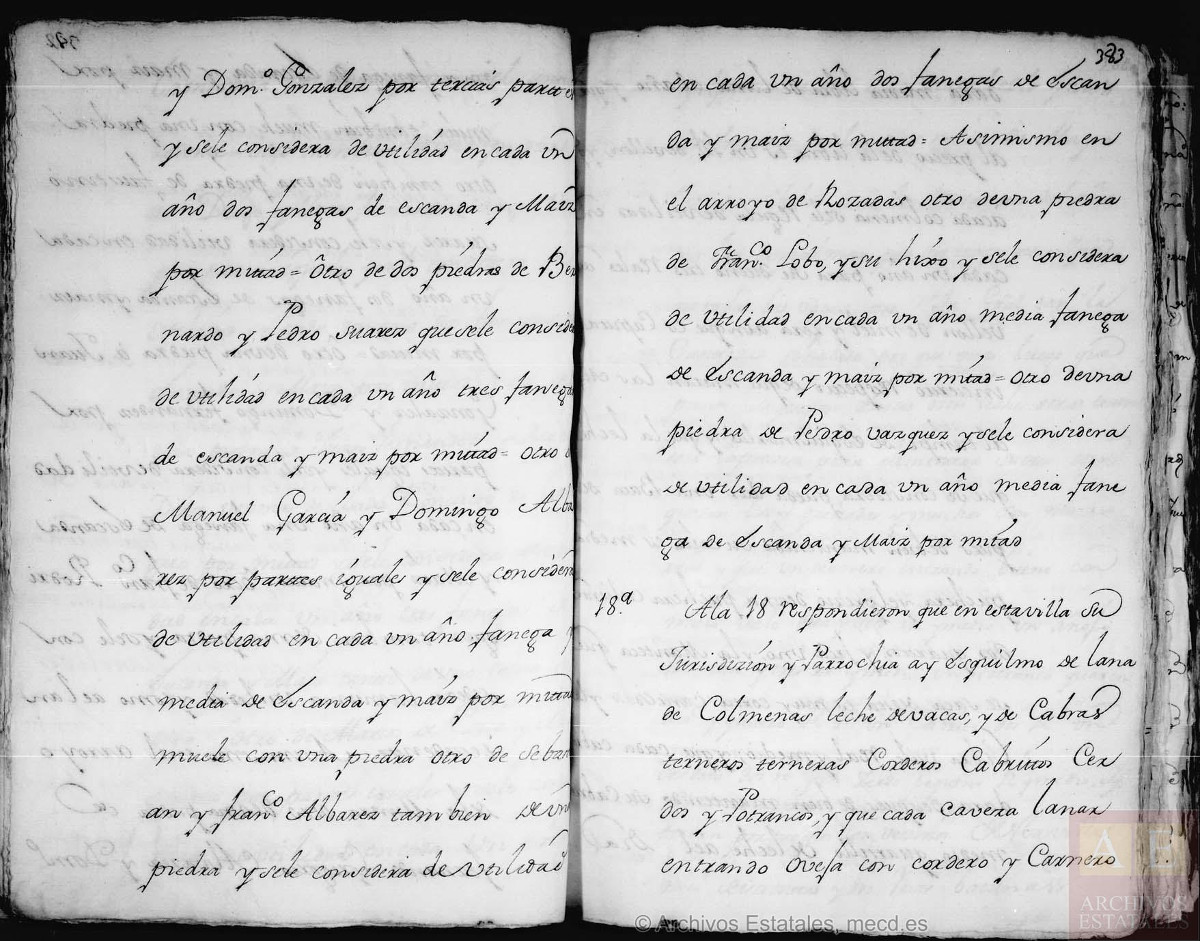 392
y Dom.º Gonzalez por tercias partes
y sele considera de utilidad en cada vn
año dos fanegas de escanda y Maiz
por mitad= Otro de dos piedras de Ber
nardo y Pedro suarez que sele conside
de utilidad en cada vn año tres fanega
de escanda y maiz por mitad= otro
Manuel Garcia y Domingo Alba
rez por partes iguales y sele considera
de utilidad en cada vn año fanega y
media de Escanda y maiz por mitad
muele con vna piedra otro de Sebas
an y fran.co Albarez tambien de vn
piedra y sele considera de utilidad
383
en cada vn año dos fanegas de Escan
da y maiz por mitad= Asimismo en
el arroyo de Rozadas otro de vna piedra
de Fran.co Lobo, y su hixo y sele considera
de utilidad en cada vn año media fanega
de Escanda y maiz por mitad= otro de vna
piedra de Pedro vazquez y sele considera
de utilidad en cada vn año media fane
ga de Escanda y Maiz por mitad
18.ª Ala 18 respondieron que en esta villa su
Jurisdizion y Parrochia ay Esquilmo de lana
de Colmenas leche de vacas, y de Cabras
terneros terneras Corderos Cabritos Cer
dos y Potrancos, y que cada caveza lanar
entrando oveja con cordero y Carnero
© Archivos Estatales, mecd.es
A E
ARCHIVOS
ESTATALES